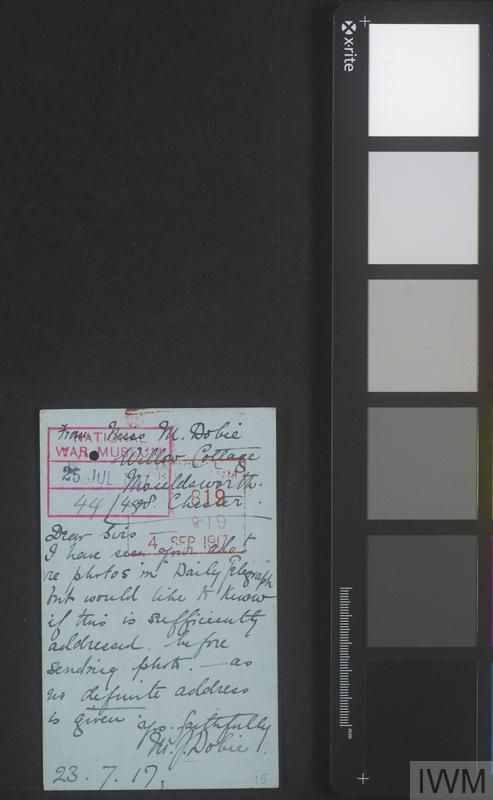 x·rite
From Miss M. Dobie
NATIONAL
WAR MUSEUM
Willow Cottage
25 JUL 1917
Mouldsworth.
44/498. Chester.
819
819
4 SEP 1917
Dear Sirs
I have seen your adv't
re photos in "Daily Telegraph
but would like to know
if this is sufficiently
addressed. before
sending photo. — as
no definite address
is given
yrs. faithfully
M. J. Dobie.
23. 7. 17.
15
mm
IWM